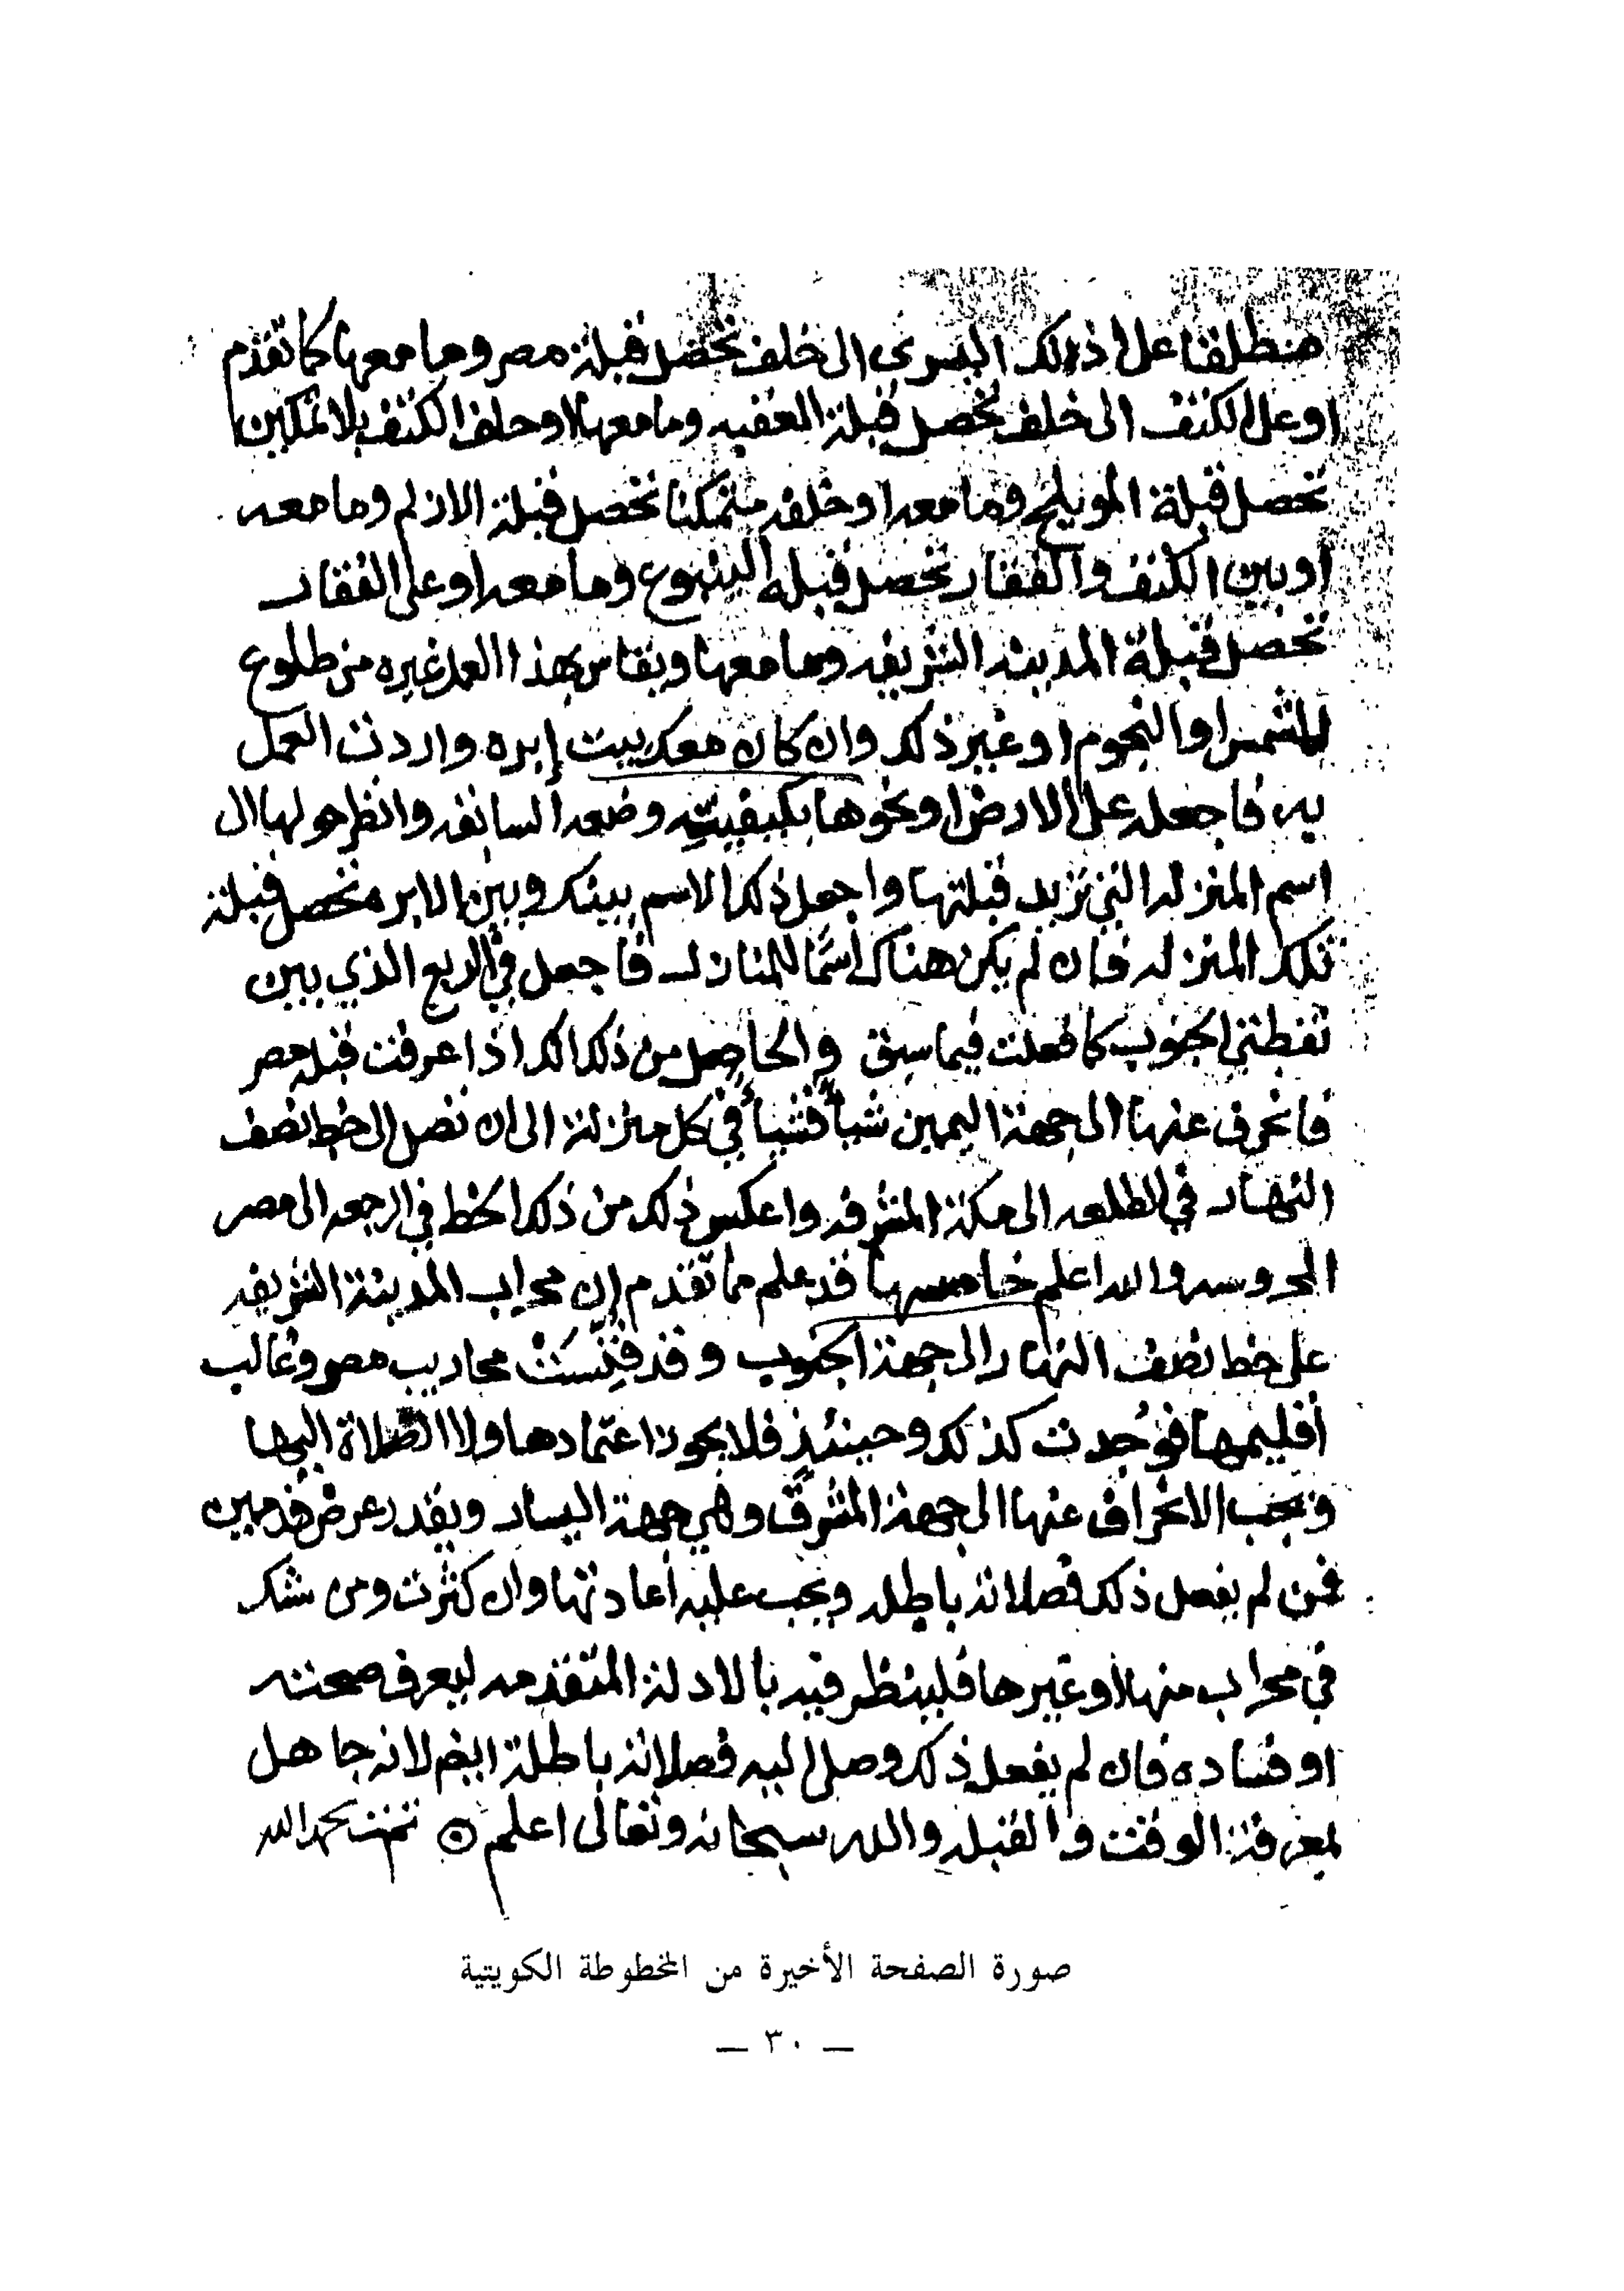 مطلقا على اذنك اليسرى الى خلف تحصل قبلة مصر وما معها كما تقدم
او على الكتف الى خلف تحصل قبلة العقبه وما معها او خلف الكتف بلا تمكين
تحصل قبلة المويلح وما معه او خلفه متمكنا تحصل قبلة الازلم وما معه
او بين الكتف والفقار تحصل قبلة الينبوع وما معه او على الفقار
تحصل قبلة المدينه الشريفه وما معها ويقاس بهذا العمل غيره من طلوع
الشمس او النجوم او غير ذلك وان كان معك بيت إبره واردت العمل
به فاجعله على الارض او نحوها بكيفيته وضعه السابقه وانظر حولها الى
اسم المنزله التي تريد قبلتها واجعل ذلك الاسم بينك وبين الابره تحصل قبلة
تلك المنزله فان لم يكن هناك اسمًا للمنازل فاجعل في الربع الذي بين
نقطتي الجنوب كما فعلت فيما سبق والحاصل من ذلك انك اذا عرفت قبلة مصر
فانحرف عنها الى جهة اليمين شيأ فشيأ في كل منزلة الى ان تصل الى خط نصف
النهار في الطلعه الى مكة المشرفه واعكس ذلك من ذلك الخط في الرجعه الى مصر
المحروسه والله اعلم خامسها قد علم مما تقدم إن محراب المدينة الشريفه
على خط نصف النهار الى جهة الجنوب وقد فتشت محاريب مصر وغالب
أقليمها فوُجدت كذلك وحينئذٍ فلا يجوز اعتمادها ولا الصلاة اليها
ويجب الانحراف عنها الى جهة المشرق وهي جهة اليسار وبقدر عرض قدمين
فمن لم يفعل ذلك فصلاته باطله ويجب عليه اعادتها وان كثرت ومن شك
في محراب منها او غيرها فلينظر فيه بالادلة المتقدمه ليعرف صحته
او فساده فان لم يفعل ذلك وصلى اليه فصلاته باطلة ايضا لانه جاهل
لمعرفة الوقت والقبله والله سبحانه وتعالى اعلم ۞ تمت بحمد الله
صورة الصفحة الأخيرة من المخطوطة الكويتية
— ٣٠ —